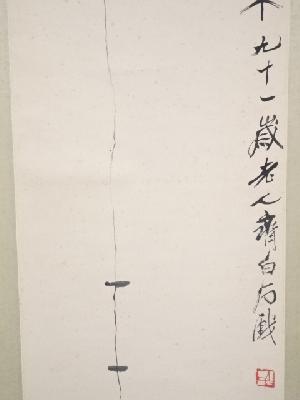 九十一歲老人齊白石戲